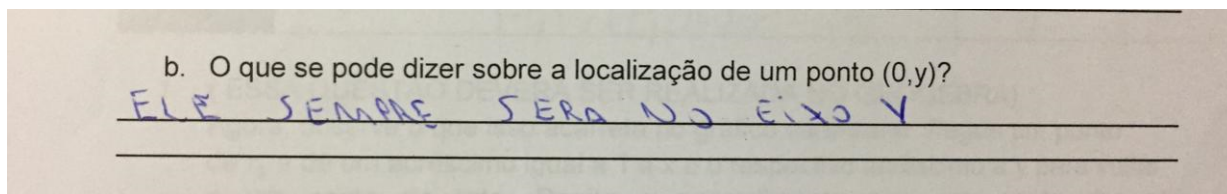 b. O que se pode dizer sobre a localização de um ponto (0,y)?
ELE SEMPRE SERA NO EIXO Y